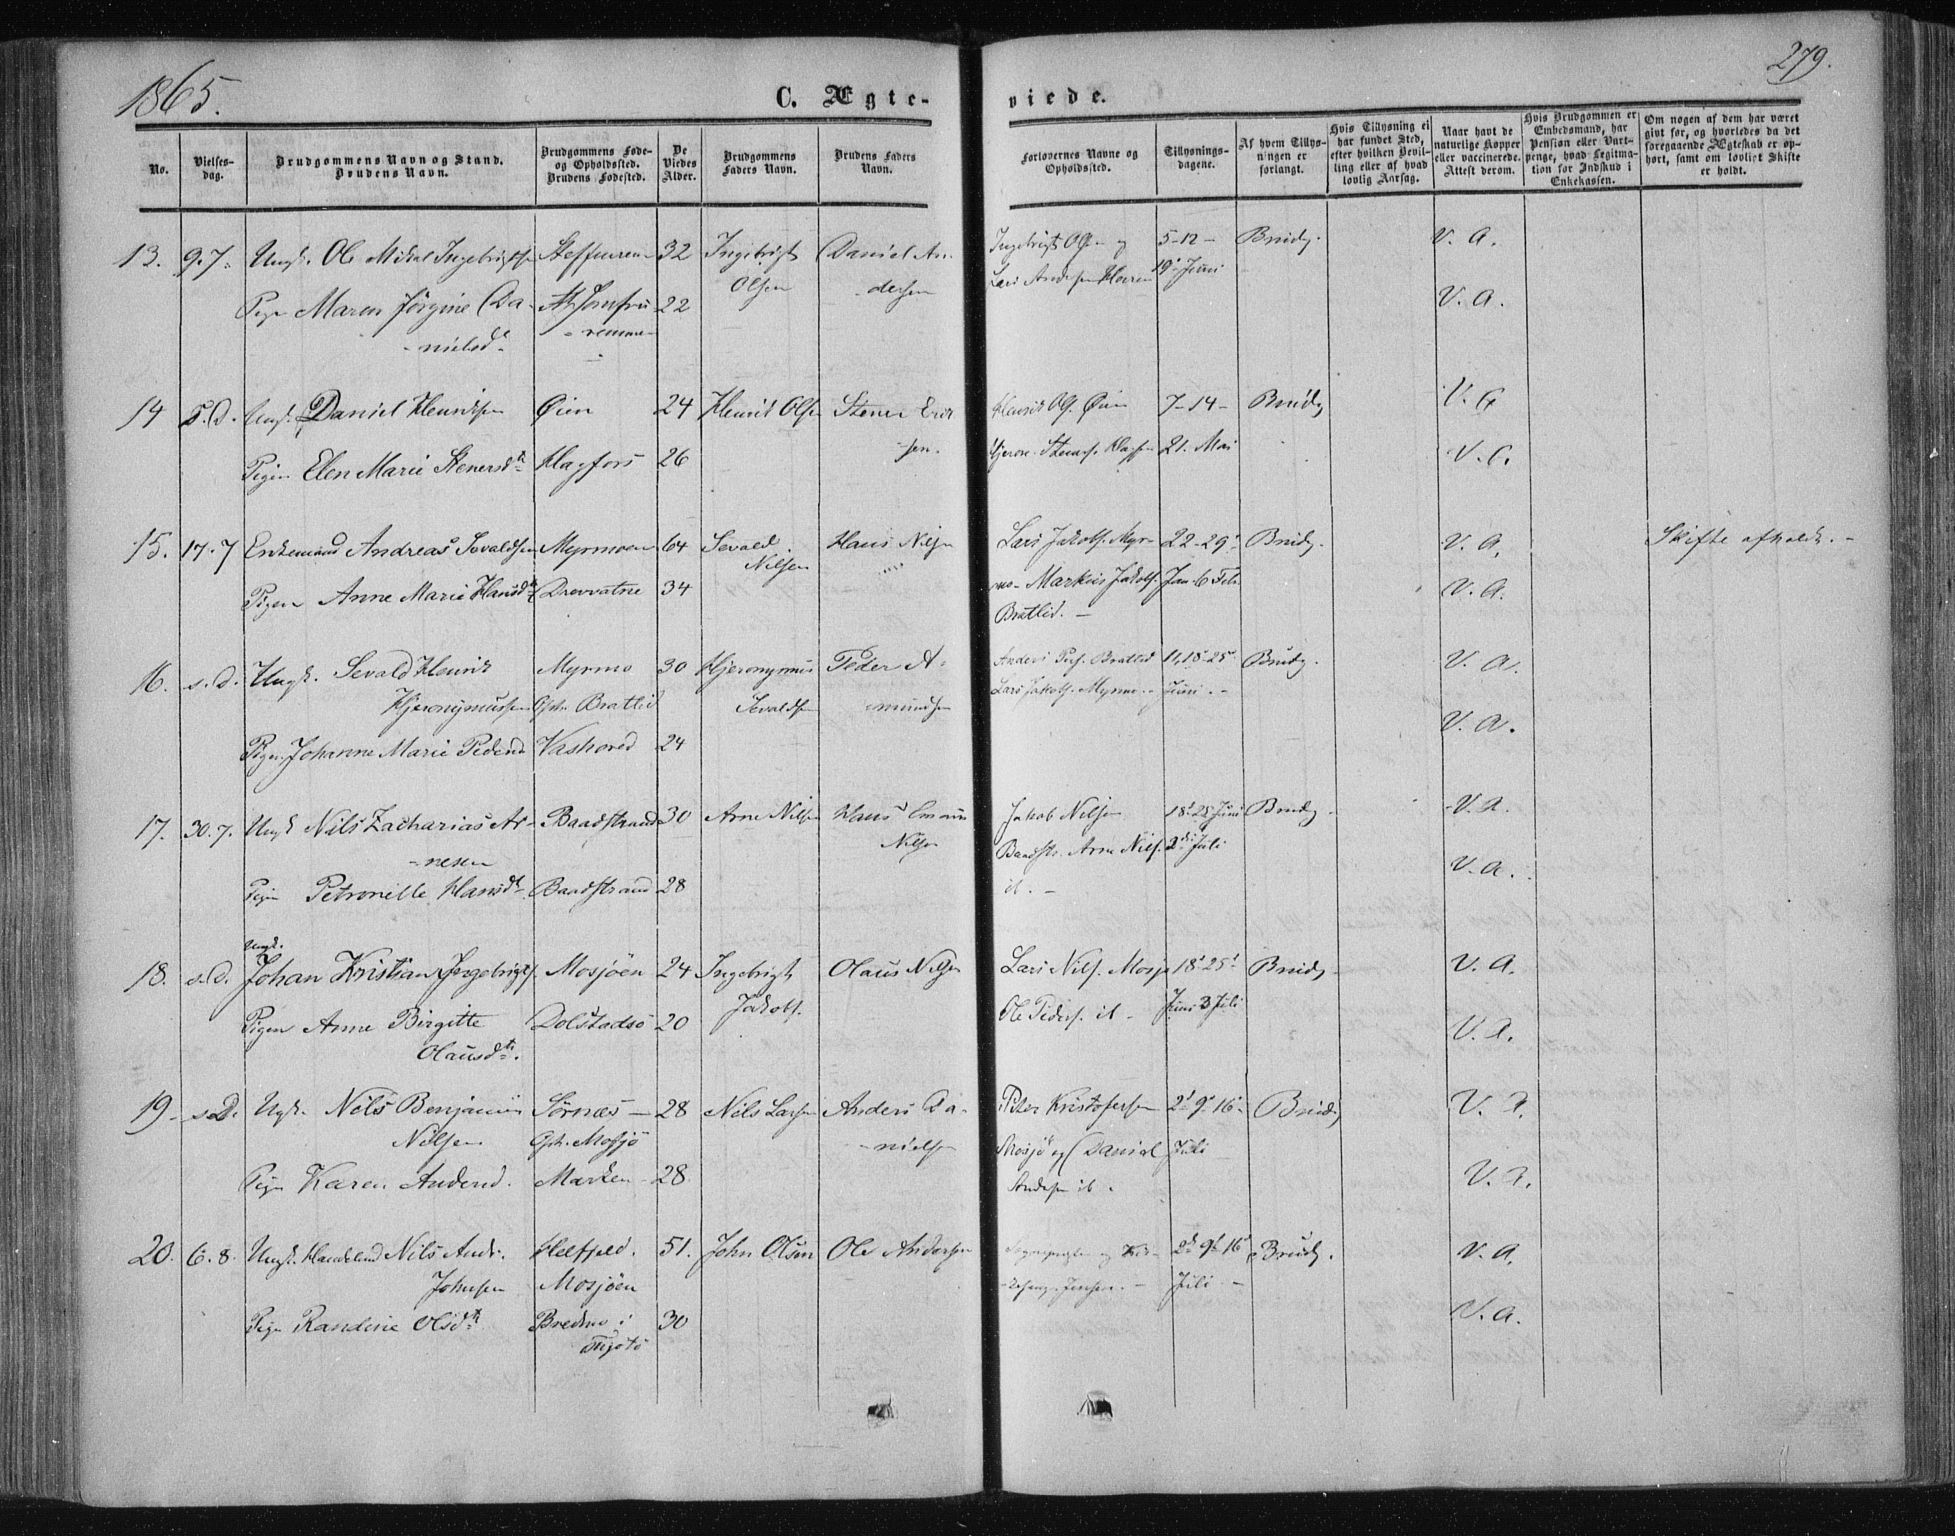 1865.
279.
C. Ægte-
viede.
No.
Vielses-
dag.
Brudgommens Navn og Stand.
Brudens Navn.
Brudgommens Føde-
og Opholdssted.
Brudens Fødested.
De
Viedes
Alder.
Brudgommens
Faders Navn.
Brudens Faders
Navn.
Forlovernes Navne og
Opholdssted.
Tillysnings-
dagene.
Af hvem Tillys-
ningen er
forlangt.
Hvis Tillysning ei
har fundet Sted,
efter hvilken Bevil-
ling eller af hvad
lovlig Aarsag.
Naar havt de
naturlige Kopper
eller vaccinerede.
Attest derom.
Hvis Brudgommen er
Embedsmand, har
Pension eller Vart-
penge, hvad Legitma-
tion for Indskud i
Enkekassen.
Om nogen af dem har været
givt før, og hvorledes da det
foregaaende Ægteskab er op-
hørt, samt om lovligt Skifte
er holdt.
13. 9.7. Ungk. Ole Mikal Ingebrigts 32 Ingebrigt Daniel An- Ingebrigt Ols. og 5-12- Brudg. V. A.
Olsen dersen Lars Andersen 19 Juni
Pige Maren Jörgine Da- 22 V. A.
-nielsd.
14 s.D. Ungk. Daniel Henriksen Øien 24 Henrik Olsen Stener Erik Henrik Ols. Øien 7-14- Brudg V. A
sen. 21. Mai
Pigen Elen Marie Stenersdtr Hagfors 26 V. A.
15. 17.7 Enkemand Andreas Sevaldsen Myrmoen 64 Sevald Hans Nilsen Lars Jakobs. Myr- 22-29 Brudg. V. A. Skifte afholdt. -
Nilsen
Pigen Anne Marie Hansdtr Drevvatne 34 mo- Markus Jakobs. Jan. 6 Feb. V. A.
Bratlid. -
16. s.D. Ungk. Sevald Henrik Myrmo 30 Hjeronymus Peder A- Anders Bratlid 11, 18-25 Brudg. V. A.
Hjeronymussen Oph. Bratlid Sevaldsen -mundsen Lars Jakobs. Myrmo.- Juni.- V. A.
Pigen Johanne Marie Pedersd 24
17. 30.7. Ungk Nils Zacharias Ar- Baadstrand 30 Arne Nilsen Hans Jakob Nilsen 18-25 Juni Brudg. V. A.
-nesen Nilsen Baadstr. Arne Nils. 2 Juli
Pigen Petronelle Hansdt. Baadstrand 28 ib. - V. A.
Ungk.
18. s.D. Johan Kristian Ingebrigts. Mosjöen 24 Ingebrigt Olaus Nilsen Lars Nils. Mosjø 18-25 Brudg. V. A.
Jakobs. Ole Peders. ib - Juni 3 Juli
Pigen Anne Birgitte Dolstadsö 20 V. A.
Olausdtr.
19- s.D. Ungk. Nils Benjamin Sörnæs- 28 Nils Larsen Anders Da- Peter Kristofersen 2 9 16 Brudg V. A.
Nilsen Oph. Mosjö -nielsen Mosjö og Daniel Juli
Pige Karen Andersd. Marken 28. Andersen ib. V. A.
20. 6.8. Ungk. Handelsmd Nils Andr. 51. John Olsen Ole Andersen 2 9 16 Brudg. V. A.
Johnsen Mosjöen Jensen. - Juli -
Pige Randine Olsdtr. Bredmo i 30 V. A.